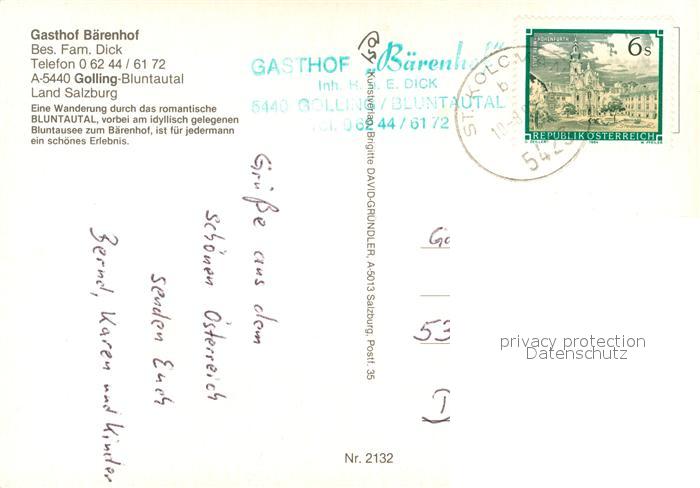 Gasthof Bärenhof
Bes. Fam. Dick
Telefon 0 62 44 / 61 72
A-5440 Golling-Bluntautal
Land Salzburg
Eine Wanderung durch das romantische
BLUNTAUTAL, vorbei am idyllisch gelegenen
Bluntausee zum Bärenhof, ist für jedermann
ein schönes Erlebnis.
GASTHOF „Bärenhof"
Inh. H. E. DICK
5440 GOLLING / BLUNTAUTAL
Tel. 0 62 44 / 61 72
Kunstverlag Brigitte DAVID-GRÜNDLER, A-5013 Salzburg, Postf. 35
6s
REPUBLIK ÖSTERREICH
1984
ST. KOLO
b
10
542
Grüße aus dem
schönen Österreich
senden Euch
Bernd, Karen und Kinder
53
privacy protection
Datenschutz
Nr. 2132